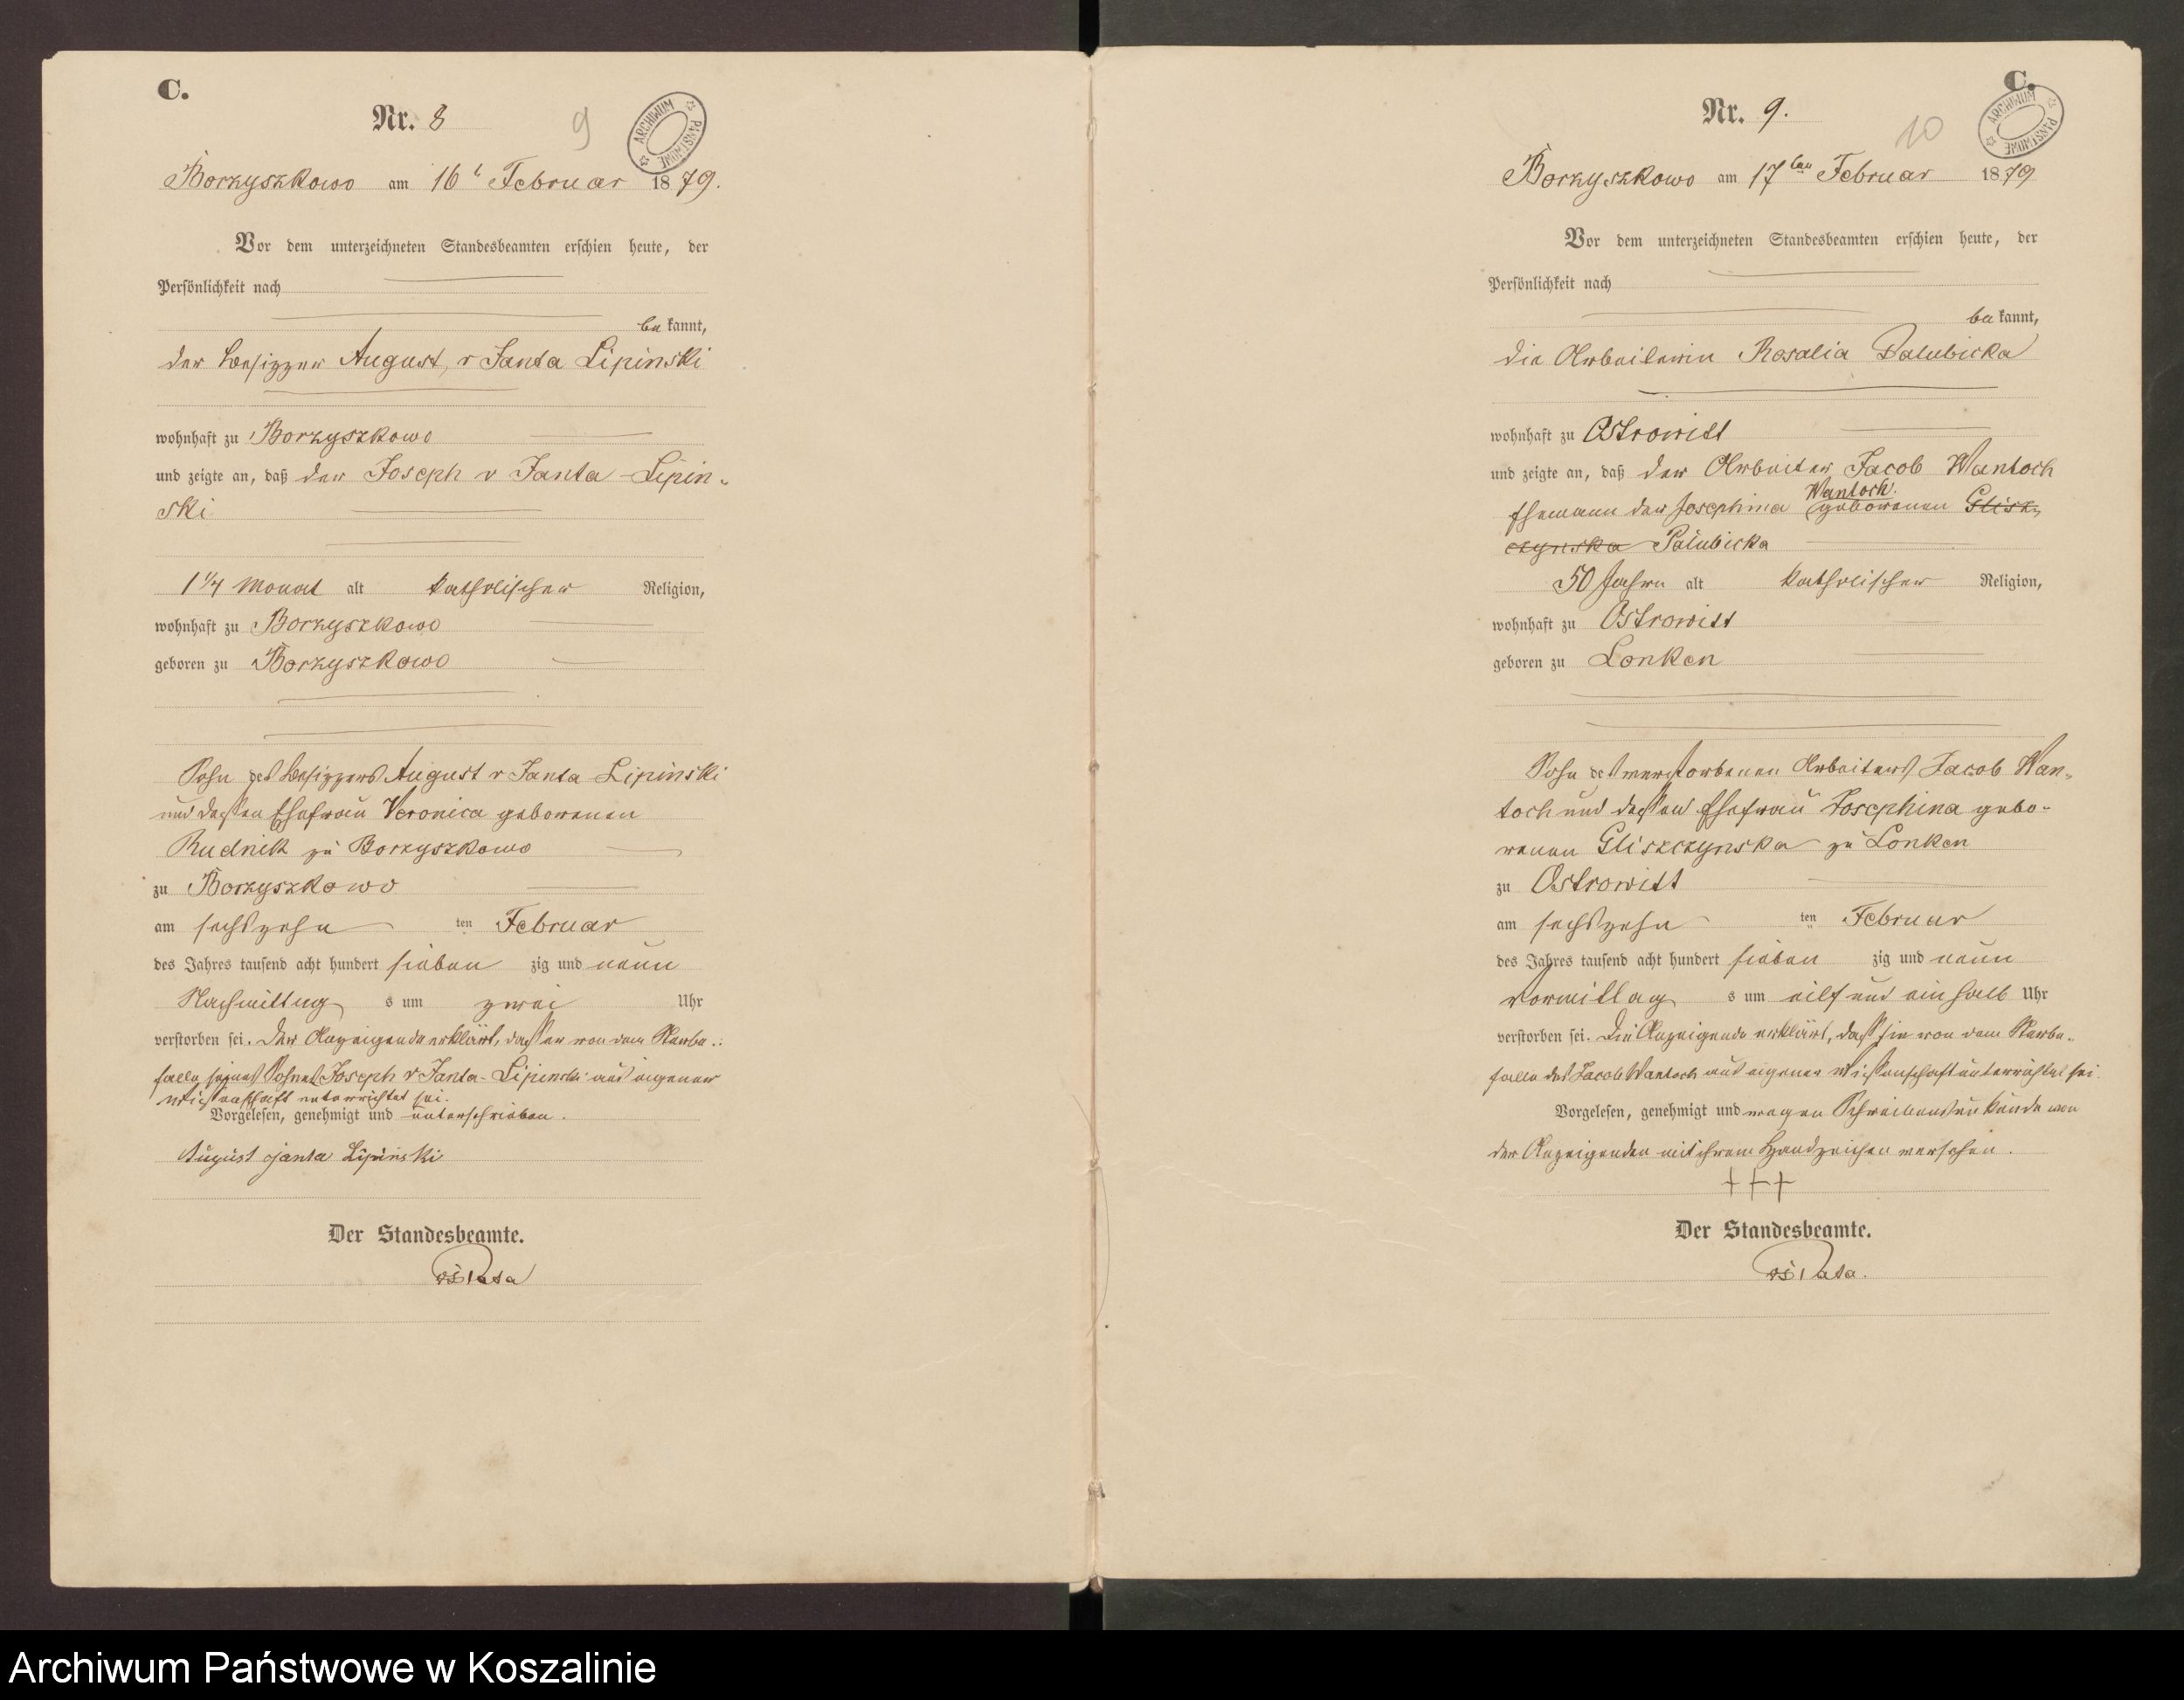 C.
Nr. 8
9
ARCHIWUM PAŃSTWOWE
Borzyszkowo am 16t Februar 1879.
Vor dem unterzeichneten Standesbeamten erschien heute, der
Persönlichkeit nach
be kannt,
der Besizzer August, v Janta Lipinski
wohnhaft zu Borzyszkowo
und zeigte an, daß der Joseph v Janta-Lipin-
ski
1 1/4 Monat alt katholischer Religion,
wohnhaft zu Borzyszkowo
geboren zu Borzyszkowo
Sohn des Besizzers August v Janta Lipinski
und dessen Ehefrau Veronica geborenen
Rudnik zu Borzyszkowo
zu Borzyszkowo
am sechszehn ten Februar
des Jahres tausend acht hundert sieben zig und neun
Nachmittag s um zwei Uhr
verstorben sei. Der Anzeigende erklärt, dass er von dem Sterbe-
falle seines Sohnes Joseph v Janta-Lipinski aus eigener
Wissenschaft unterrichtet sei.
Vorgelesen, genehmigt und unterschrieben.
August Janta Lipinski
Der Standesbeamte.
C.
Nr. 9.
10
ARCHIWUM PAŃSTWOWE
Borzyszkowo am 17ten Februar 1879
Vor dem unterzeichneten Standesbeamten erschien heute, der
Persönlichkeit nach
be kannt,
die Arbeiterin Rosalia Palubicka
wohnhaft zu Ostrowitt
und zeigte an, daß der Arbeiter Jacob Wantoch
Wantoch
Ehemann der Josephina geborenen Glisz-
czynska Palubicka
50 Jahre alt katholischer Religion,
wohnhaft zu Ostrowitt
geboren zu Lonken
Sohn des verstorbenen Arbeiters Jacob Wan-
toch und dessen Ehefrau Josephina gebo-
renen Gliszczynska zu Lonken
zu Ostrowitt
am sechszehn ten Februar
des Jahres tausend acht hundert sieben zig und neun
Vormittag s um eilf und ein halb Uhr
verstorben sei. Die Anzeigende erklärt, dass sie von dem Sterbe-
falle des Jacob Wantoch aus eigener Wissenschaft unterrichtet sei.
Vorgelesen, genehmigt und wegen Schreibensunkunde von
der Anzeigenden mit ihrem Handzeichen versehen.
+++
Der Standesbeamte.
Archiwum Państwowe w Koszalinie